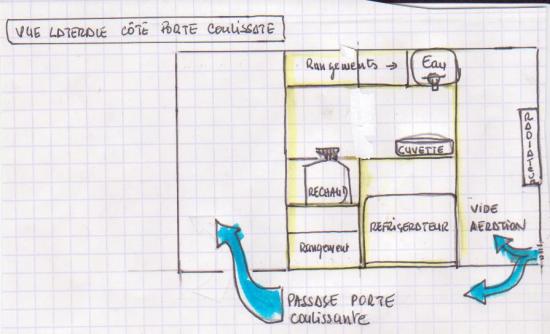 VUE LATERALE CÔTÉ PORTE COULISSATE
Rangements →
Eau
RADIATEUR
CUVETTE
RECHAUD
REFRIGERATEUR
VIDE
AERATION
Rangement
PASSAGE PORTE
coulissante